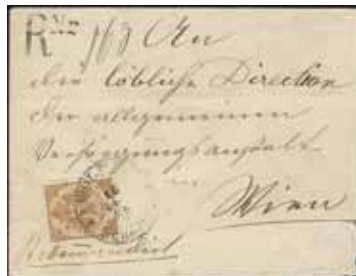 R No 168 An
die löbliche Direction
der allgemeinen
Versorgungsanstalt
in
Wien
Recommandirt